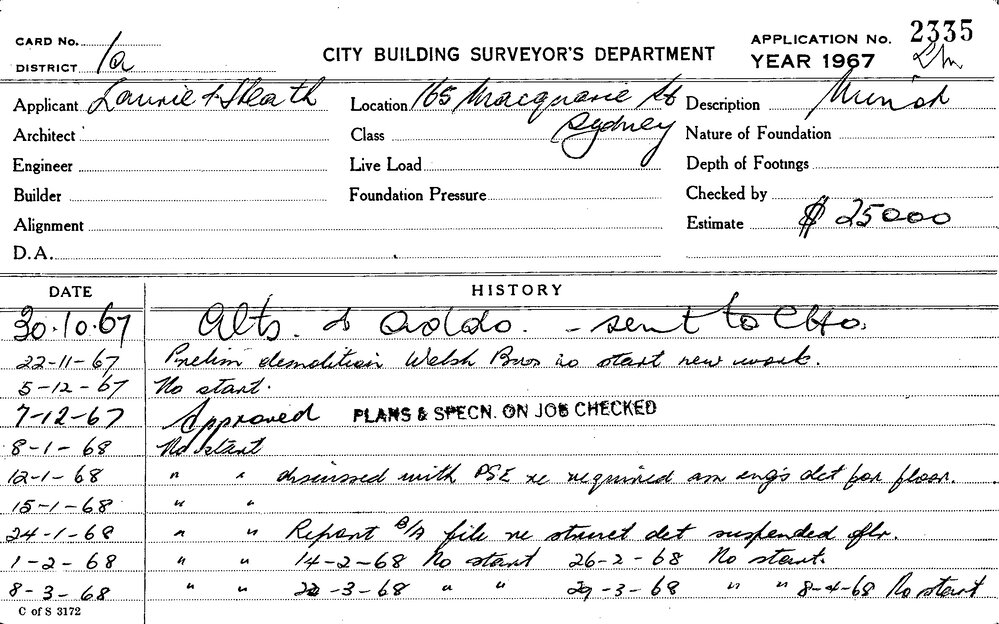 CARD No.
DISTRICT 1a
CITY BUILDING SURVEYOR'S DEPARTMENT
APPLICATION No. 2335
YEAR 1967
Applicant Laurie & Heath
Location 165 Macquarie St Sydney
Description
Architect
Class
Nature of Foundation
Engineer
Live Load
Depth of Footings
Builder
Foundation Pressure
Checked by
Alignment
Estimate $ 25000
D.A.
DATE HISTORY
30.10.67 Alts. & Addo. - sent to CHO.
22-11-67 Prelim demolition Welsh Bros no start new work.
5-12-67 No start.
7-12-67 Approved PLANS & SPECN. ON JOB CHECKED
8-1-68 No start
12-1-68 " " discussed with PSE re required am eng's det for floor.
15-1-68 " "
24-1-68 " " Report B/A file re struct det suspended flr.
1-2-68 " " 14-2-68 No start 26-2-68 No start.
8-3-68 " " 22-3-68 " " 29-3-68 " " 8-4-68 No start
C of S 3172